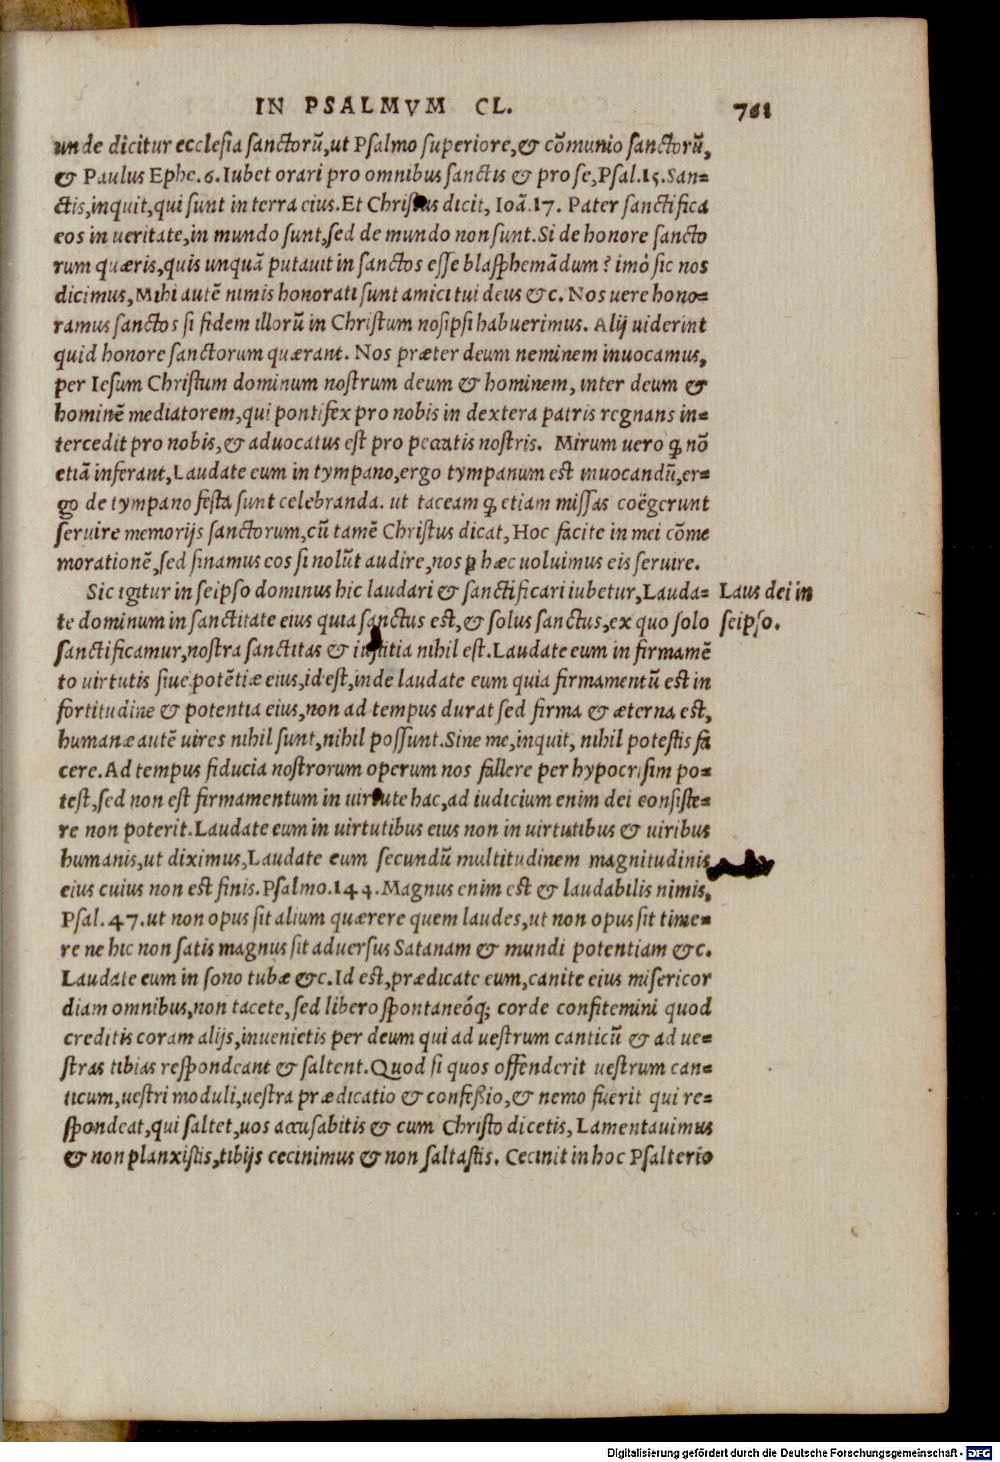 IN PSALMVM CL. 761
unde dicitur ecclesia sanctorũ,ut Psalmo superiore,& cõmunio sanctorũ,
& Paulus Ephe.6.Iubet orari pro omnibus sanctis & pro se,Psal.15.San=
ctis,inquit,qui sunt in terra eius.Et Christus dicit, Ioã.17. Pater sanctifica
eos in ueritate,in mundo sunt,sed de mundo non sunt.Si de honore sancto
rum quæris,quis unquã putauit in sanctos esse blasphemãdum? imò sic nos
dicimus,Mihi autẽ nimis honorati sunt amici tui deus &c. Nos uere hono=
ramus sanctos si fidem illorũ in Christum nosipsi habuerimus. Alij uiderint
quid honore sanctorum quærant. Nos præter deum neminem inuocamus,
per Iesum Christum dominum nostrum deum & hominem, inter deum &
hominẽ mediatorem,qui pontifex pro nobis in dextera patris regnans in=
tercedit pro nobis,& aduocatus est pro peccatis nostris. Mirum uero ꝙ nõ
etiã inferant,Laudate eum in tympano,ergo tympanum est inuocandũ,er=
go de tympano festa sunt celebranda. ut taceam ꝙ etiam missas coëgerunt
seruire memorijs sanctorum,cũ tamẽ Christus dicat, Hoc facite in mei cõme
morationẽ,sed sinamus eos si nolũt audire,nos ꝑ hæc uoluimus eis seruire.
Sic igitur in seipso dominus hic laudari & sanctificari iubetur,Lauda= Laus dei in
te dominum in sanctitate eius quia sanctus est,& solus sanctus,ex quo solo seipso.
sanctificamur,nostra sanctitas & iustitia nihil est.Laudate eum in firmamẽ
to uirtutis siue potẽtiæ eius,id est,inde laudate eum quia firmamentũ est in
fortitudine & potentia eius,non ad tempus durat sed firma & æterna est,
humanæ autẽ uires nihil sunt,nihil possunt.Sine me,inquit, nihil potestis fa
cere.Ad tempus fiducia nostrorum operum nos fallere per hypocrisim po=
test,sed non est firmamentum in uirtute hac,ad iudicium enim dei consiste=
re non poterit.Laudate eum in uirtutibus eius non in uirtutibus & uiribus
humanis,ut diximus,Laudate eum secundũ multitudinem magnitudinis
eius cuius non est finis.Psalmo.144.Magnus enim est & laudabilis nimis,
Psal.47.ut non opus sit alium quærere quem laudes,ut non opus sit time=
re ne hic non satis magnus sit aduersus Satanam & mundi potentiam &c.
Laudate eum in sono tubæ &c.Id est,prædicate eum,canite eius misericor
diam omnibus,non tacete,sed libero spontaneóq; corde confitemini quod
creditis coram alijs,inuenietis per deum qui ad uestrum canticũ & ad ue=
stras tibias respondeant & saltent.Quod si quos offenderit uestrum can=
ticum,uestri moduli,uestra prædicatio & confeßio,& nemo fuerit qui re=
spondeat,qui saltet,uos accusabitis & cum Christo dicetis, Lamentauimus
& non planxistis,tibijs cecinimus & non saltastis. Cecinit in hoc Psalterio
Digitalisierung gefördert durch die Deutsche Forschungsgemeinschaft - DFG